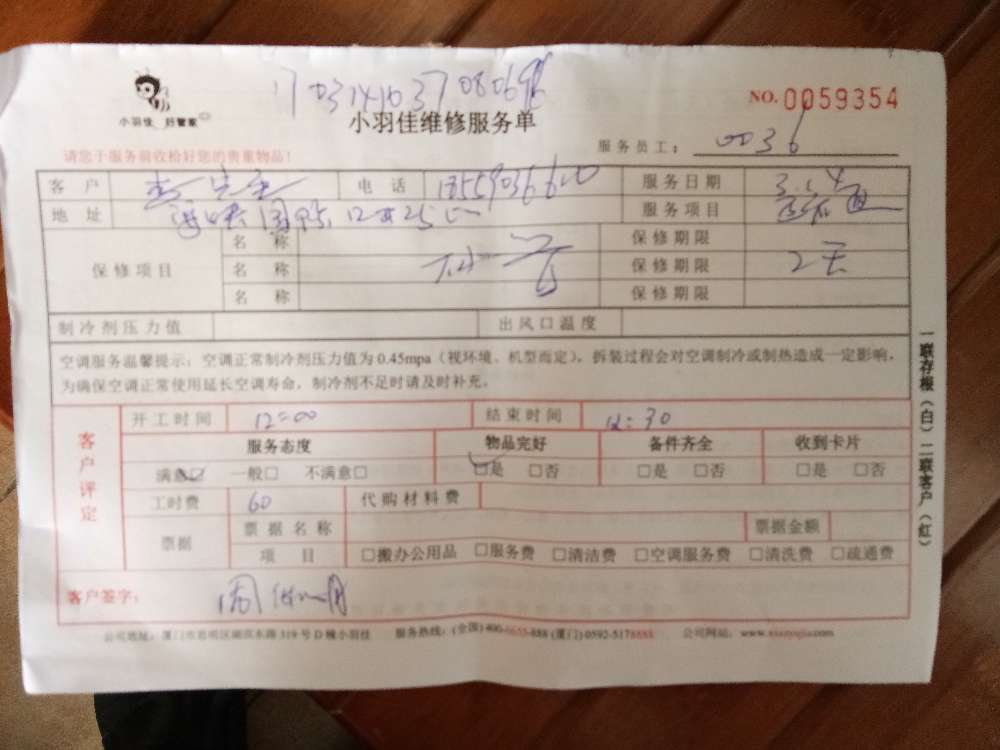 小羽佳 好管家
小羽佳维修服务单
NO.0059354
请您于服务前收检好您的贵重物品!
服务员工: 0036
客户 电话 服务日期
地址 服务项目
保修项目 名称 保修期限
名称 保修期限 2天
名称 保修期限
制冷剂压力值 出风口温度
空调服务温馨提示:空调正常制冷剂压力值为0.45mpa(视环境、机型而定),拆装过程会对空调制冷或制热造成一定影响,
为确保空调正常使用延长空调寿命,制冷剂不足时请及时补充。
客户评定
开工时间 12:00 结束时间 12:30
服务态度 物品完好 备件齐全 收到卡片
满意☑ 一般□ 不满意□ ☑是 □否 □是 □否 □是 □否
工时费 60 代购材料费
票据 票据名称 票据金额
项目 □搬办公用品 □服务费 □清洁费 □空调服务费 □清洗费 □疏通费
客户签字:
公司地址:厦门市思明区湖滨东路319号D幢小羽佳 服务热线:(全国)400- (厦门)0592-5178888 公司网址:
一联存根(白)二联客户(红)